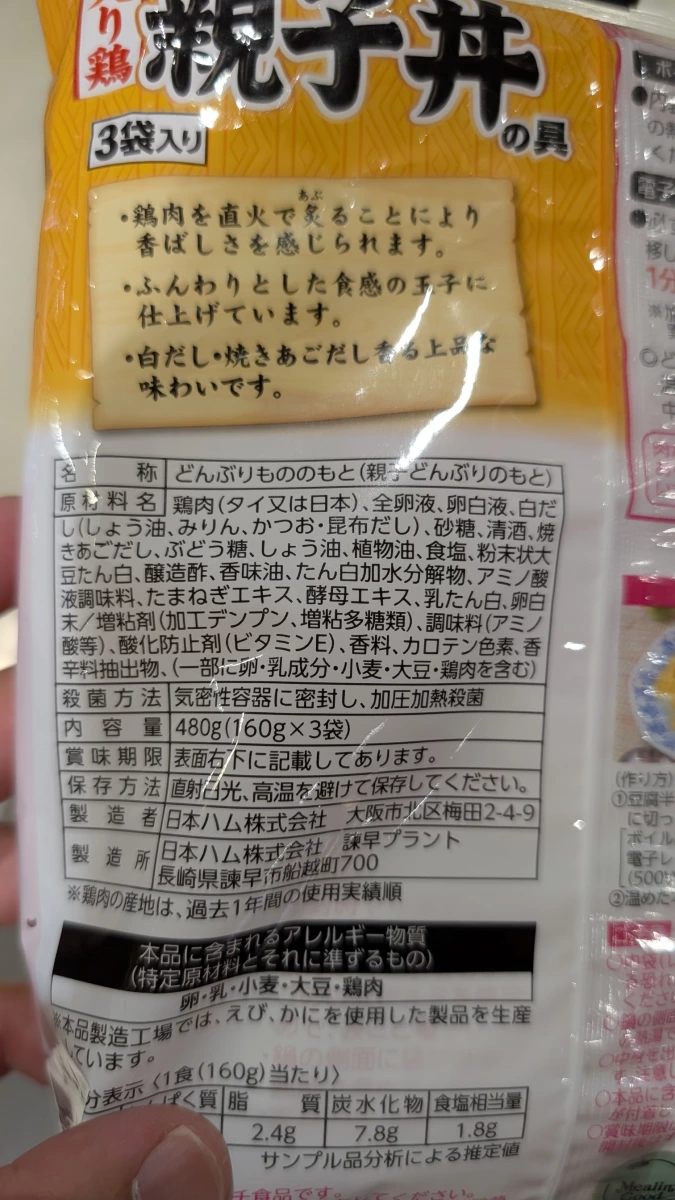 り鶏
親子丼
の具
3袋入り
あぶ
・鶏肉を直火で炙ることにより
香ばしさを感じられます。
・ふんわりとした食感の玉子に
仕上げています。
・白だし・焼きあごだし香る上品な
味わいです。
名称 どんぶりもののもと(親子どんぶりのもと)
原材料名 鶏肉(タイ又は日本)、全卵液、卵白液、白だ
し(しょう油、みりん、かつお・昆布だし)、砂糖、清酒、焼
きあごだし、ぶどう糖、しょう油、植物油、食塩、粉末状大
豆たん白、醸造酢、香味油、たん白加水分解物、アミノ酸
液調味料、たまねぎエキス、酵母エキス、乳たん白、卵白
末/増粘剤(加工デンプン、増粘多糖類)、調味料(アミノ
酸等)、酸化防止剤(ビタミンE)、香料、カロテン色素、香
辛料抽出物、(一部に卵・乳成分・小麦・大豆・鶏肉を含む)
殺菌方法 気密性容器に密封し、加圧加熱殺菌
内容量 480g(160g×3袋)
賞味期限 表面右下に記載してあります。
保存方法 直射日光、高温を避けて保存してください。
製造者 日本ハム株式会社 大阪市北区梅田2-4-9
製造所 日本ハム株式会社 諫早プラント
長崎県諫早市船越町700
※鶏肉の産地は、過去1年間の使用実績順
本品に含まれるアレルギー物質
(特定原材料とそれに準ずるもの)
卵・乳・小麦・大豆・鶏肉
※本品製造工場では、えび、かにを使用した製品を生産
しています。
分表示〈1食(160g)当たり〉
ぱく質 脂質 炭水化物 食塩相当量
2.4g 7.8g 1.8g
サンプル品分析による推定値
チ食品です。
電子
1分
(作り方)
①豆腐半
に切っ
電子レ
(500W
②温めた